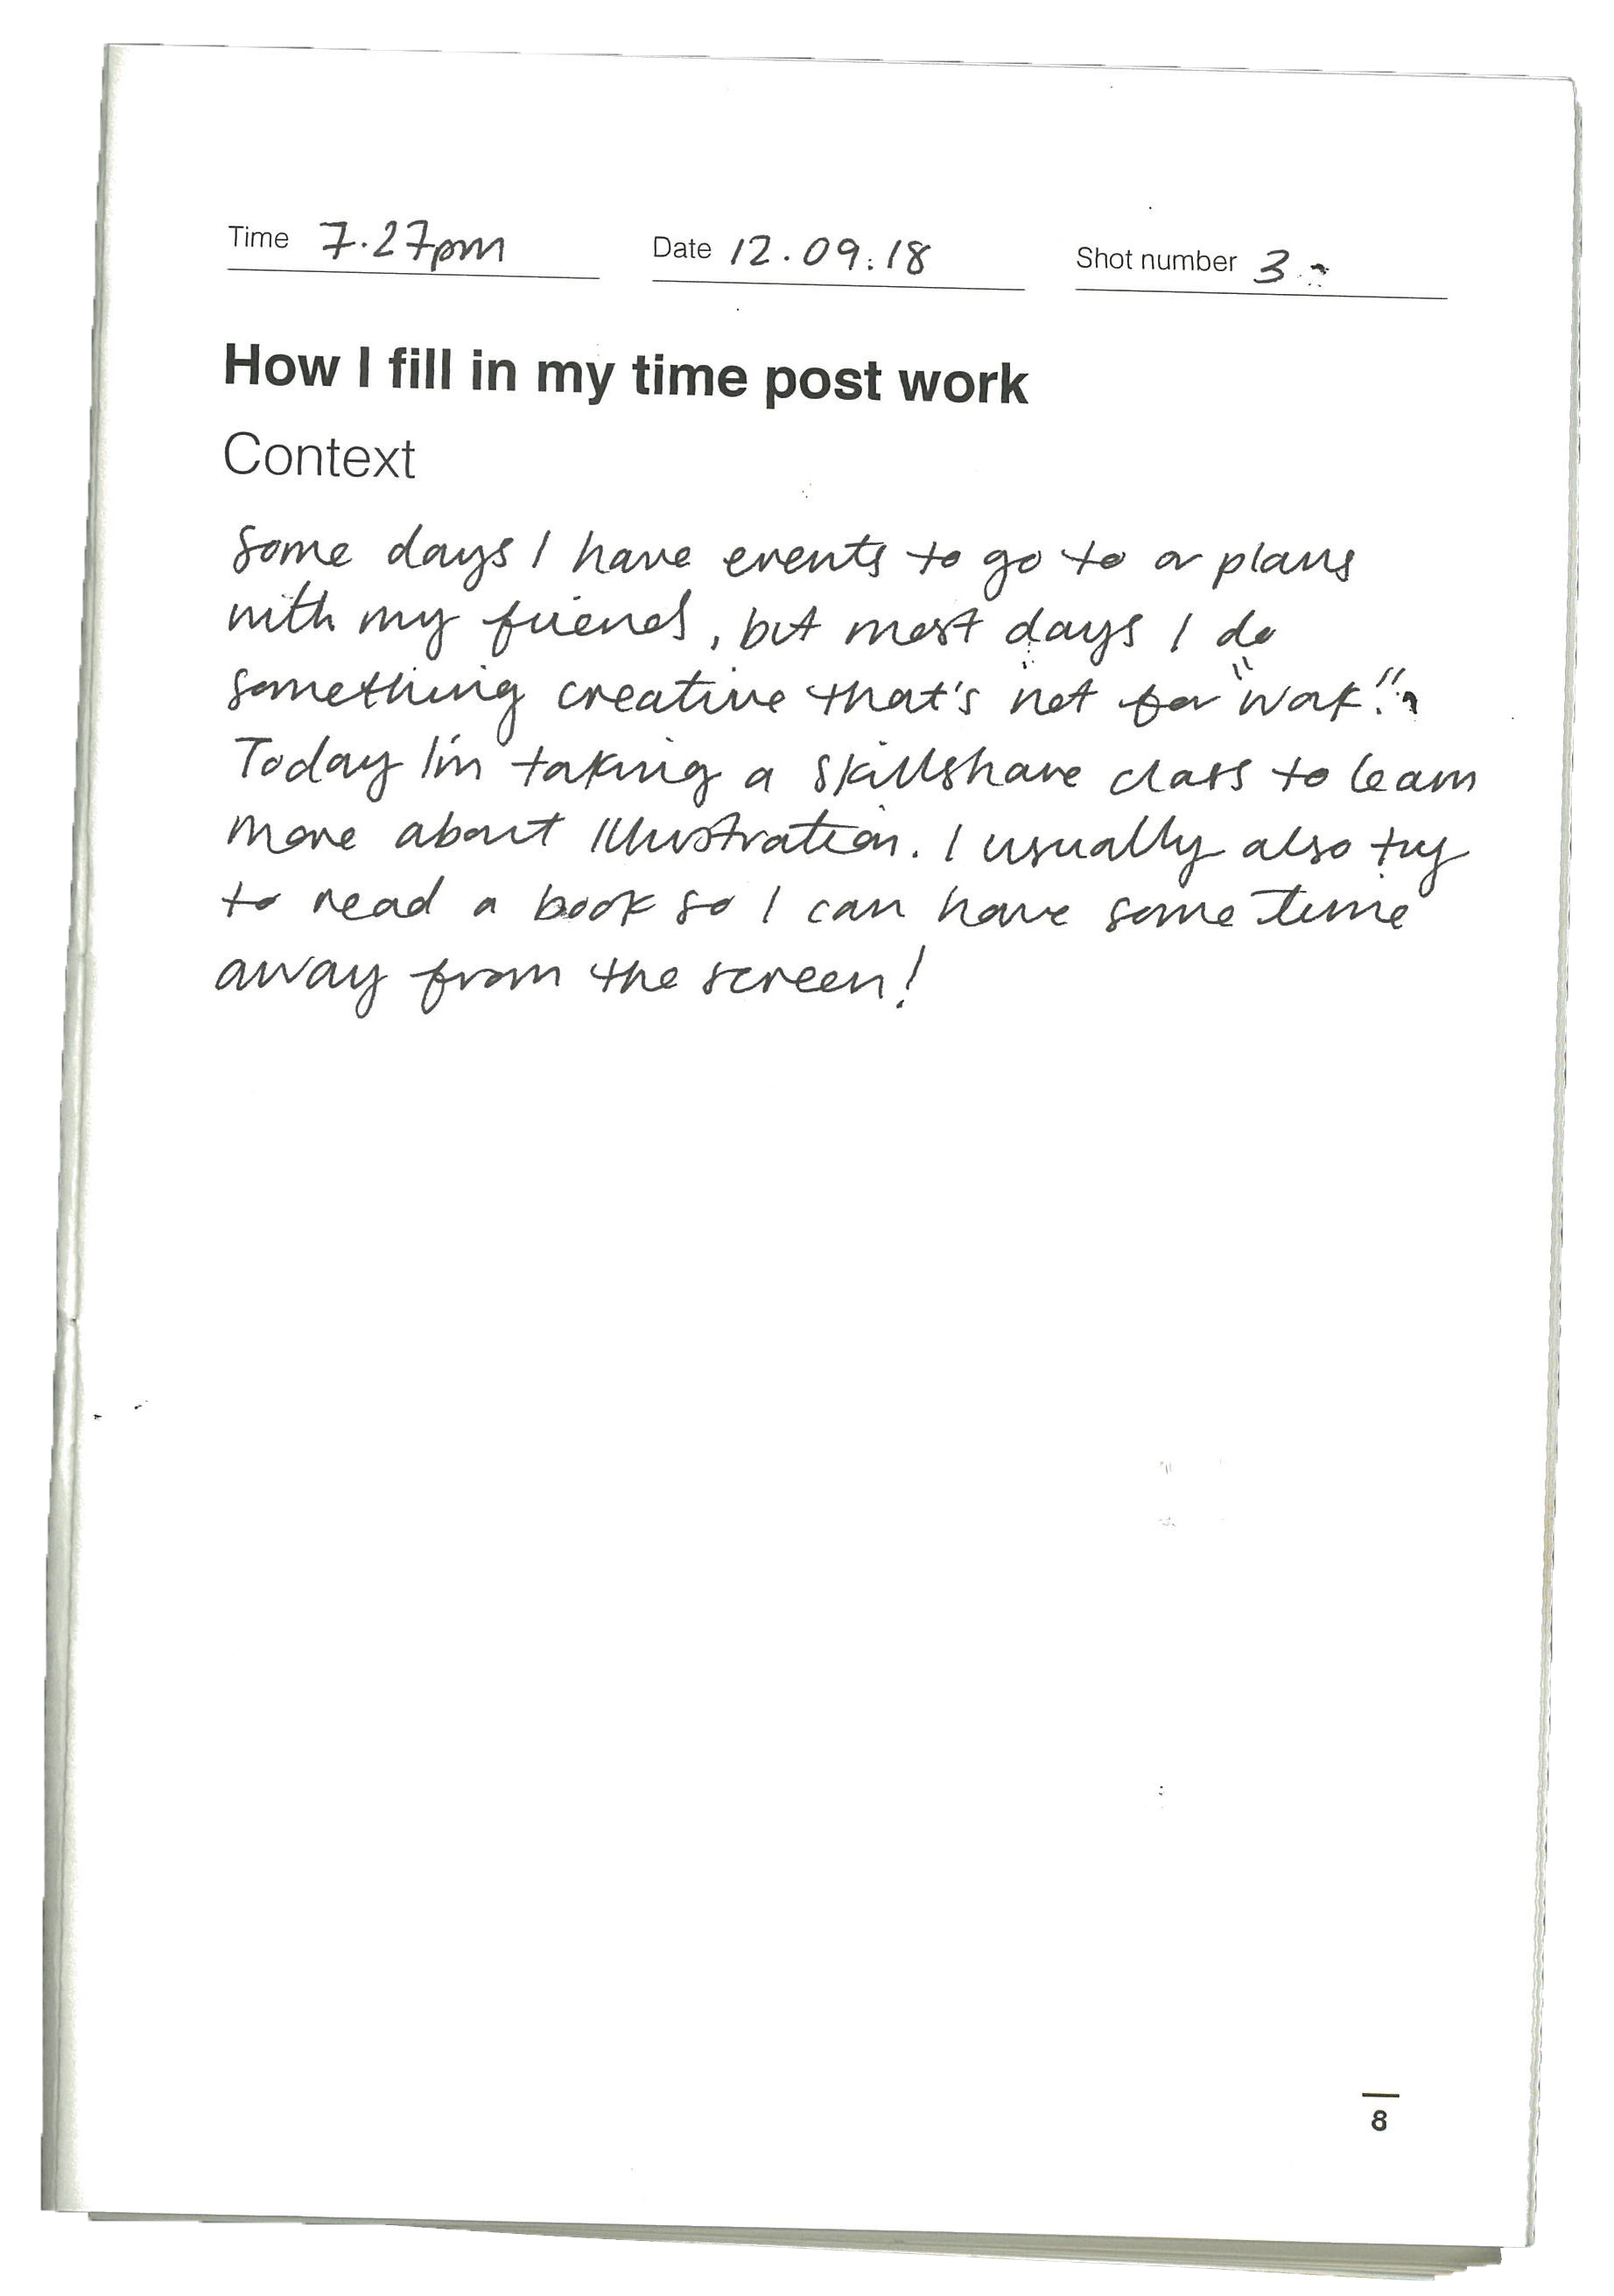 Time 7.27pm Date 12.09.18 Shot number 3
How I fill in my time post work
Context
Some days I have events to go to or plans
with my friends, but most days I do
something creative that's not for "work".
Today I'm taking a skillshare class to learn
more about Illustration. I usually also try
to read a book so I can have some time
away from the screen!
8